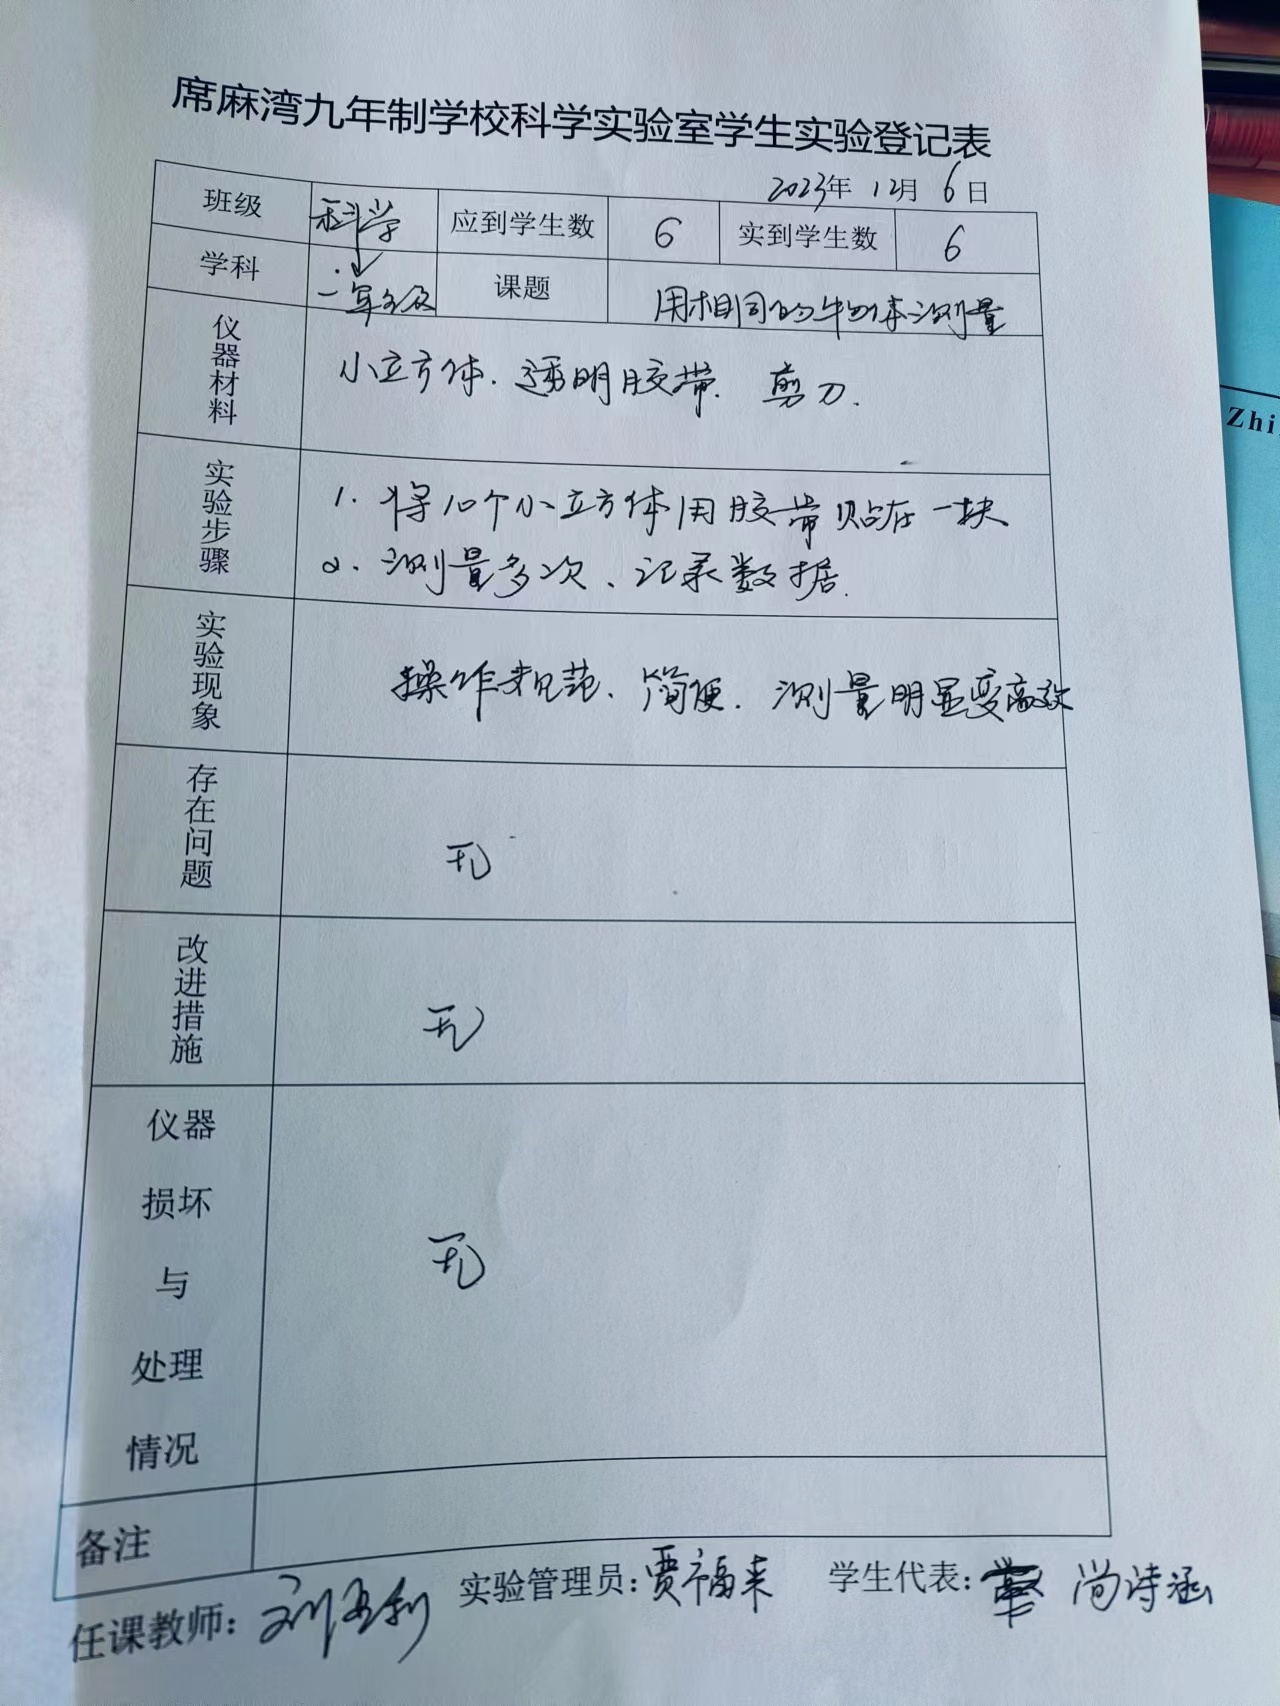 席麻湾九年制学校科学实验室学生实验登记表
2023年 12月 6日
班级 科学 应到学生数 6 实到学生数 6
学科 一年级 课题 用相同的物体测量
仪器材料 小立方体、透明胶带、剪刀.
实验步骤 1. 将10个小立方体用胶带贴在一块
2. 测量多次、记录数据.
实验现象 操作规范、简便. 测量明显变高效
存在问题 无
改进措施 无
仪器损坏与处理情况 无
备注
任课教师: 刘 利 实验管理员: 贾福来 学生代表: 尚诗涵
Zhi